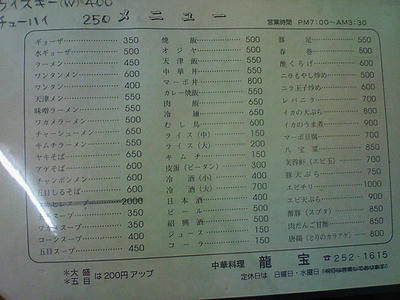 イスキー(W) 400
チューハイ 250
メニュー
営業時間 PM7:00〜AM3:30
ギョーザ 350
水ギョーザ 500
ラーメン 450
ワンタンメン 600
ワンタン 400
天津メン
味噌ラーメン
ワカメラーメン
チャーシューメン
キムチラーメン
ヤキそば
アゲそば
チャンポンメン
五目しるそば
スープ 2000
スープ 350
ワカメスープ
コーンスープ 400
五目スープ 450
焼飯 500
オジヤ 500
天津飯 550
中華丼 550
マーボ丼 800
カレー焼飯 550
肉飯 650
冷麺 650
むし鳥 600
ライス(中) 150
ライス(大) 200
キムチ 150
皮蛋(ピータン) 300
冷酒(小) 400
冷酒(大) 700
日本酒 400
ビール 500
紹興酒 500
ジュース 150
コーラ 150
豚足 550
春巻 500
酢くらげ 600
ニラもやし炒め 500
ニラ玉子炒め 600
レバニラ 700
イカの天ぷら 800
イカのうま煮 900
マーボ豆腐 700
八宝菜 850
芙蓉蟹(エビ玉) 700
豚天ぷら 750
エビチリ 1000
エビ天ぷら
酢豚(スブタ) 850
肉だんご甘酢
唐揚(とりのカラアゲ) 800
*大盛
*五目 は200円アップ
中華料理 龍宝 ☎252-1615
定休日は 日曜日・水曜日